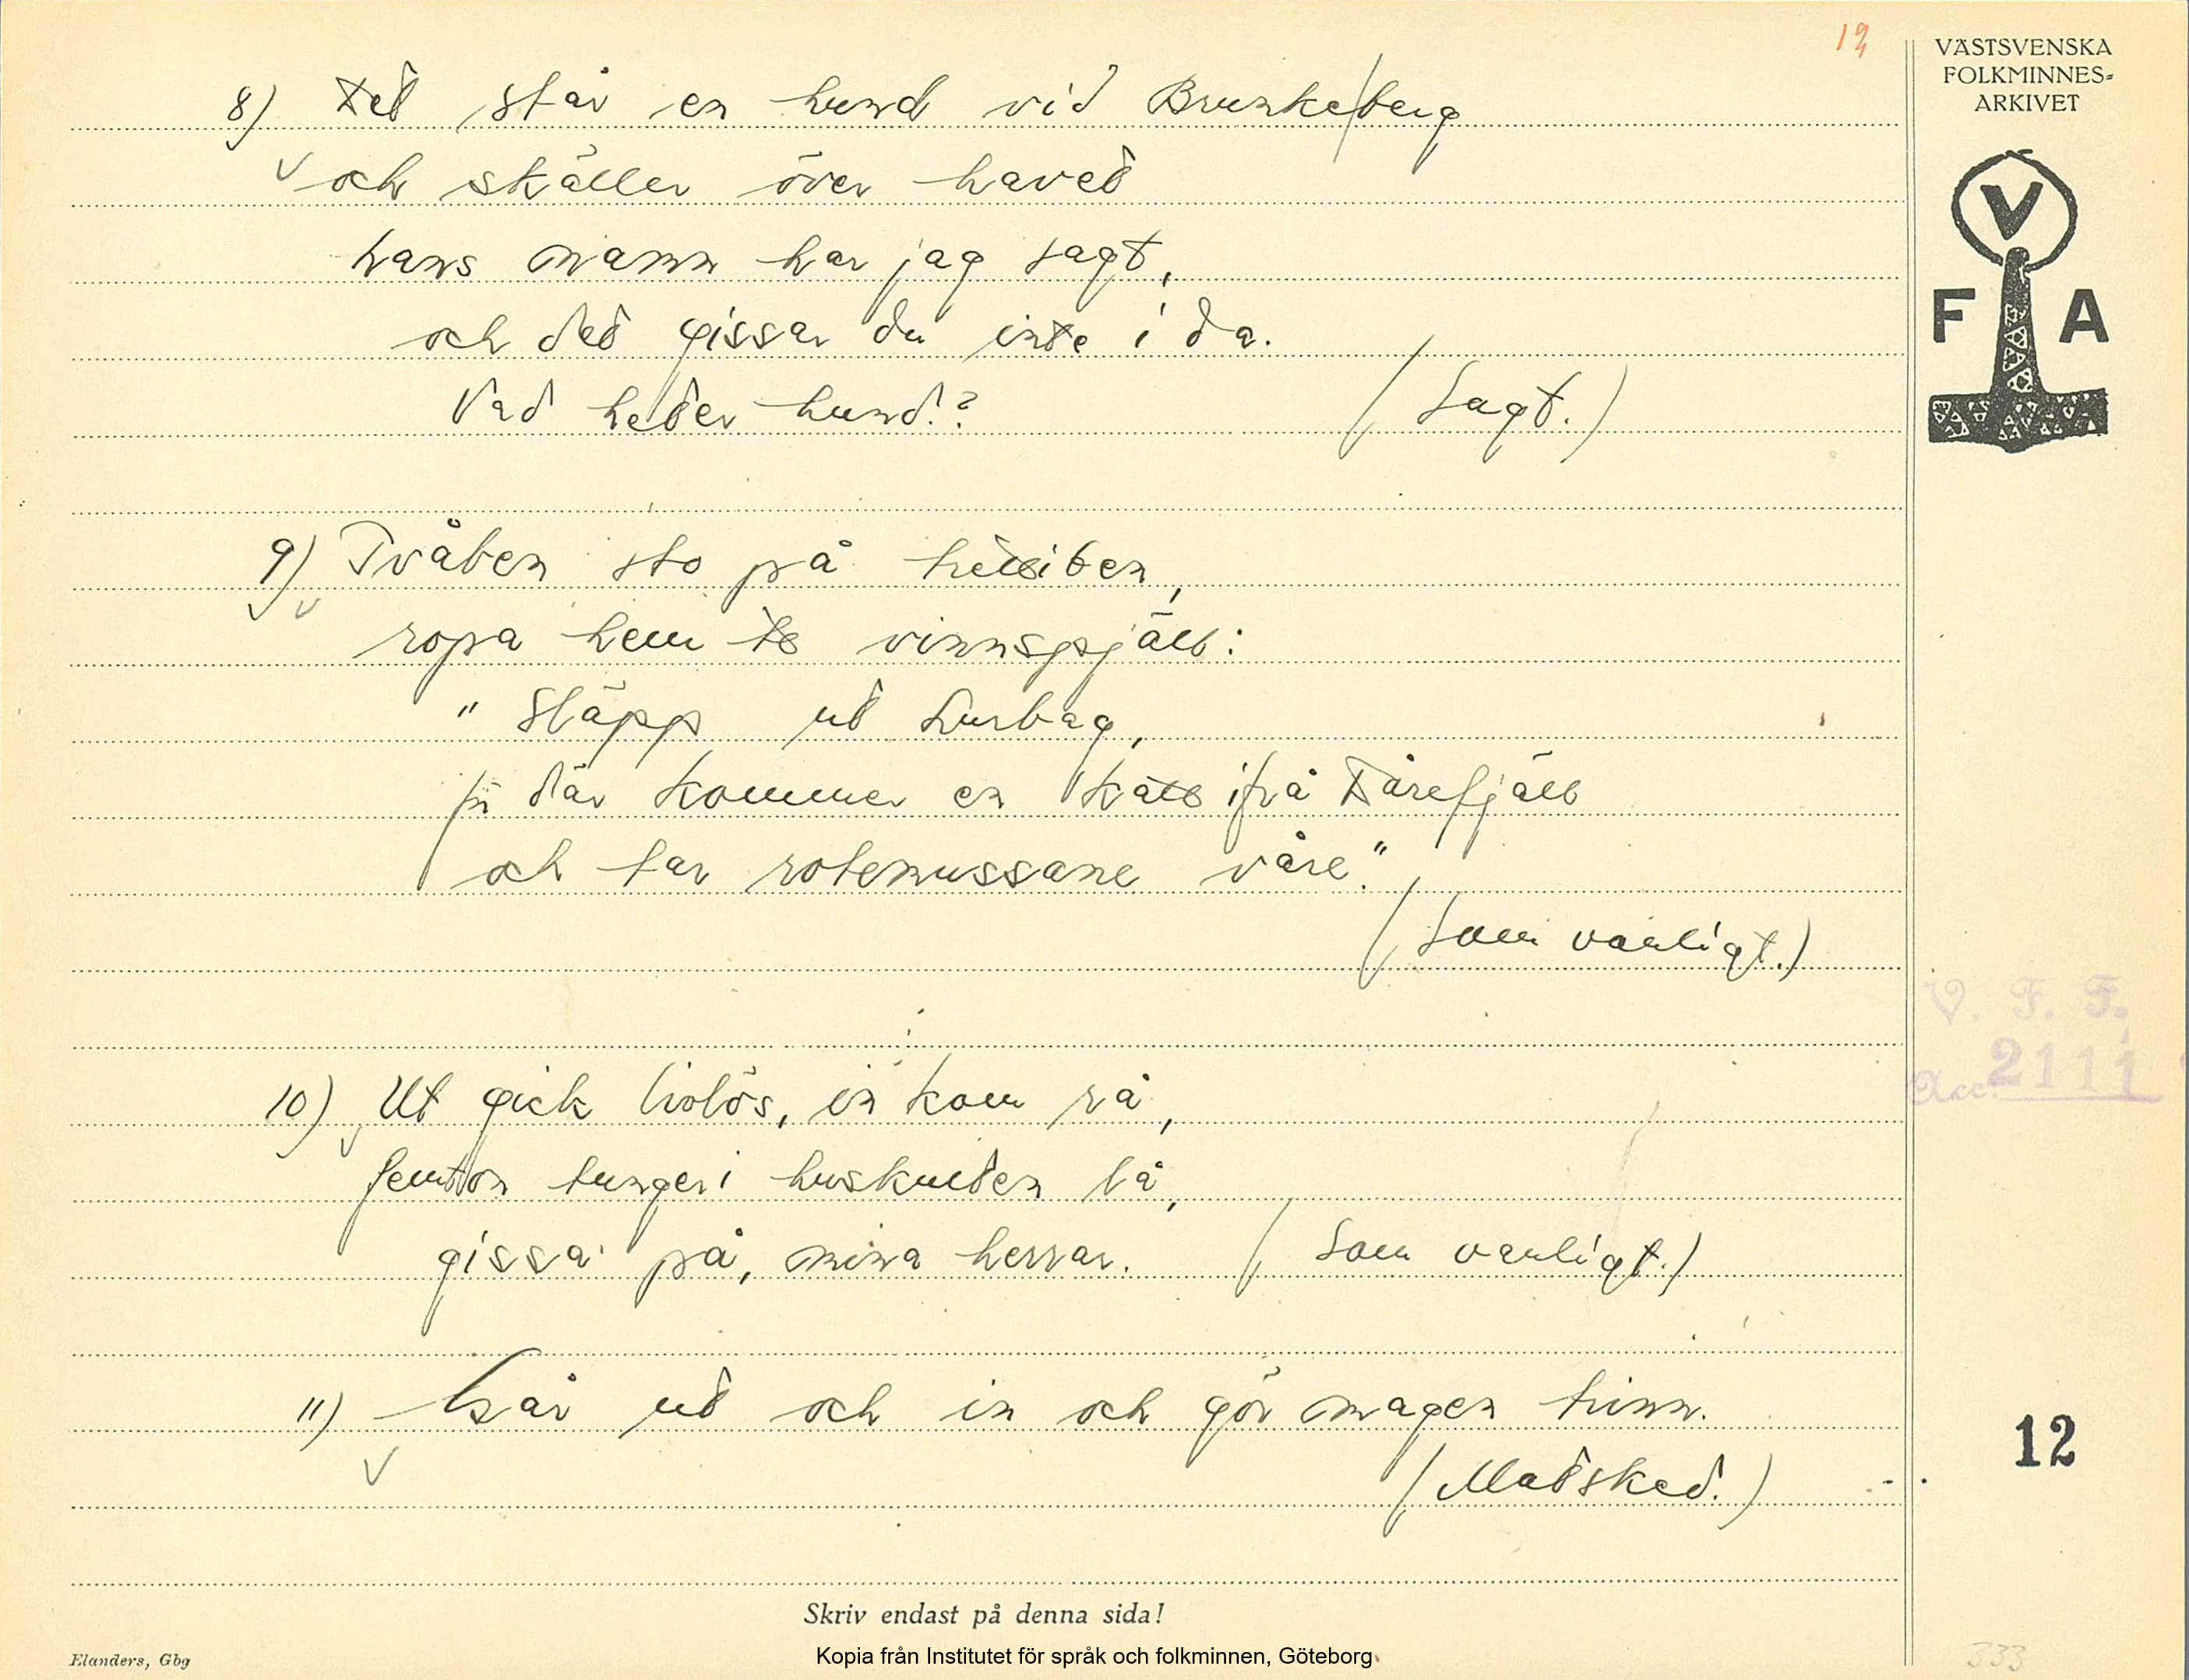 12
VÄSTSVENSKA
FOLKMINNES=
ARKIVET
V
F A
8) Det står en hund vid Brunkeberg
och skäller över havet
hans namn har jag sagt,
och det gissar du inte i da.
Vad heter hund.? (Sagt.)
9) Tvåben sto på
ropa hem te
"Släpp ut Lurbag,
där kommer en ifrå
och tar rotemussane våre."
(Som vanligt.)
10) Ut gick livlös, in kom rå,
femton tunger i huskniten lå,
gissa på, mina herrar. (Som vanligt.)
11) Går ut och in och gör magen trinn.
(Matsked.)
V. F. F.
Acc. 2111
12
Skriv endast på denna sida!
Elanders, Gbg
Kopia från Institutet för språk och folkminnen, Göteborg
333